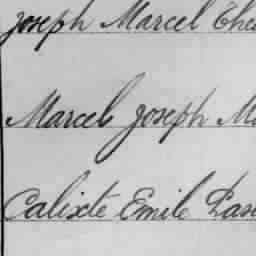 Joseph Marcel
Marcel Joseph
Calixte Emile